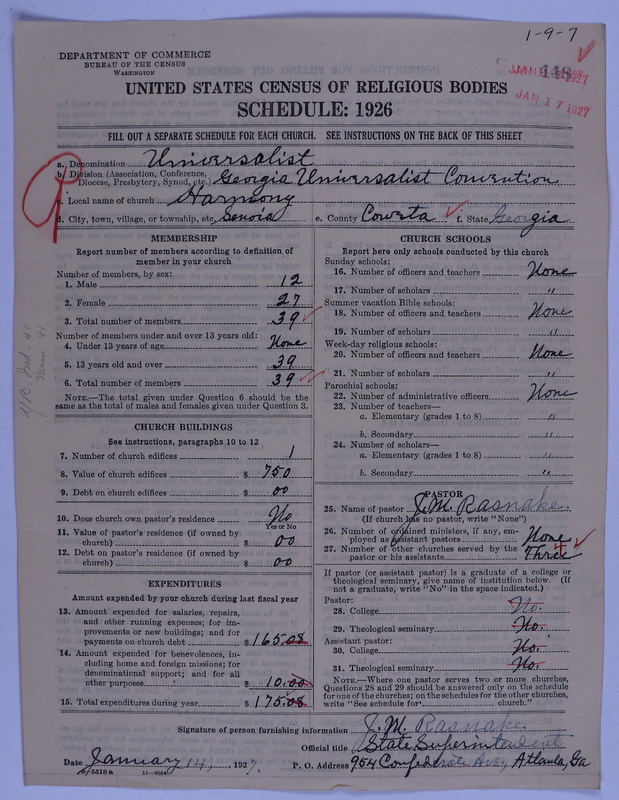 1-9-7
DEPARTMENT OF COMMERCE
BUREAU OF THE CENSUS
WASHINGTON
448
JAN 1927
JAN 17 1927
UNITED STATES CENSUS OF RELIGIOUS BODIES
SCHEDULE: 1926
FILL OUT A SEPARATE SCHEDULE FOR EACH CHURCH. SEE INSTRUCTIONS ON THE BACK OF THIS SHEET
a. Denomination Universalist
b. Division (Association, Conference, Diocese, Presbytery, Synod, etc.) Georgia Universalist Convention
c. Local name of church Harmony
d. City, town, village, or township, etc. Senoia e. County Coweta f. State Georgia
MEMBERSHIP
Report number of members according to definition of
member in your church
Number of members, by sex:
1. Male 12
2. Female 27
3. Total number of members 39
Number of members under and over 13 years old:
4. Under 13 years of age None
5. 13 years old and over 39
6. Total number of members 39
NOTE.—The total given under Question 6 should be
same as the total of males and females given under Question 3.
CHURCH BUILDINGS
See instructions, paragraphs 10 to 12
7. Number of church edifices 1
8. Value of church edifices $ 750
9. Debt on church edifices $ 00
10. Does church own pastor's residence No
Yes or No
11. Value of pastor's residence (if owned by
church) $ 00
12. Debt on pastor's residence (if owned by
church) $ 00
EXPENDITURES
Amount expended by your church during last fiscal year
13. Amount expended for salaries, repairs,
and other running expenses; for im-
provements or new buildings; and for
payments on church debt $ 165.08
14. Amount expended for benevolences, in-
cluding home and foreign missions; for
denominational support; and for all
other purposes $ 10.00
15. Total expenditures during year $ 175.08
CHURCH SCHOOLS
Report here only schools conducted by this church
Sunday schools:
16. Number of officers and teachers None
17. Number of scholars "
Summer vacation Bible schools:
18. Number of officers and teachers None
19. Number of scholars "
Week-day religious schools:
20. Number of officers and teachers None
21. Number of scholars "
Parochial schools:
22. Number of administrative officers None
23. Number of teachers—
a. Elementary (grades 1 to 8) "
b. Secondary "
24. Number of scholars—
a. Elementary (grades 1 to 8) "
b. Secondary "
PASTOR
25. Name of pastor J. M. Rasnake.
(If church has no pastor, write "None")
26. Number of ordained ministers, if any, em-
ployed as assistant pastors None
27. Number of other churches served by the
pastor or his assistants Three 4
If pastor (or assistant pastor) is a graduate of a college or
theological seminary, give name of institution below. (If
not a graduate, write "No" in the space indicated.)
Pastor:
28. College No.
29. Theological seminary No.
Assistant pastor:
30. College No.
31. Theological seminary No.
NOTE.—Where one pastor serves two or more churches,
Questions 28 and 29 should be answered only on the schedule
for one of the churches; on the schedules for the other churches,
write "See schedule for church."
Signature of person furnishing information J. M. Rasnake
Official title State Superintendent
Date January 14, 1927. P. O. Address 954 Confederate Ave., Atlanta, Ga
5518a 11—9054